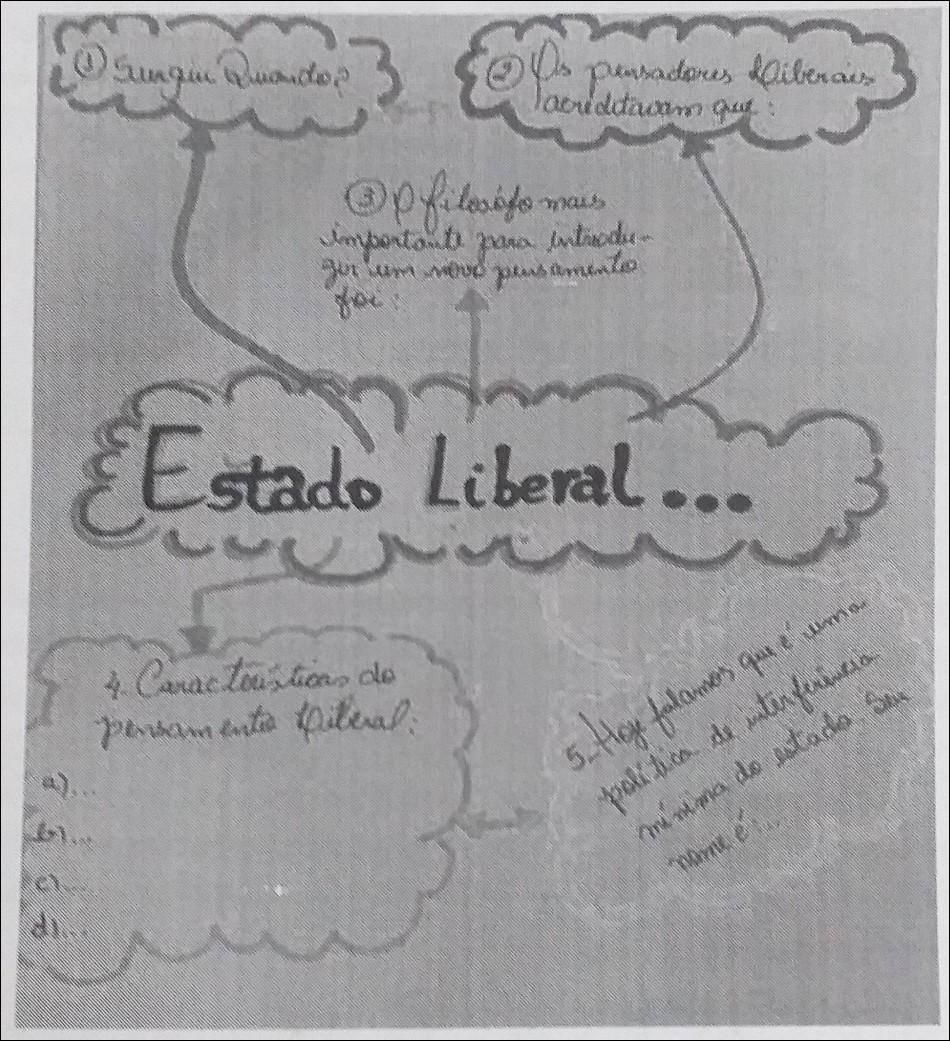 ① Surgiu Quando?
② Os pensadores liberais
acreditavam que:
③ O filosófo mais
importante para introdu-
zir um novo pensamento
foi:
Estado Liberal...
4. Características do
pensamento liberal:
a)...
b)...
c)...
d)...
5- Hoje falamos que é uma
política de interferência
mínima do estado. Seu
nome é:...